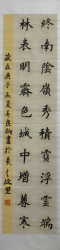 終南陰嶺秀積雪浮雲端
林表明霽色城中增暮寒
歲在庚子夏書於羲之故里